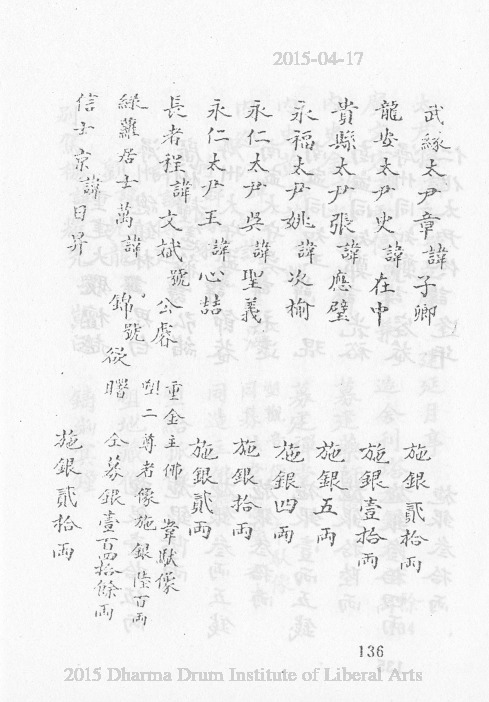 2015-04-17
武緣太尹章諱子卿 施銀貳拾兩
龍安太尹史諱在中 施銀壹拾兩
貴縣太尹張諱應璧 施銀五兩
永福太尹姚諱次榆 施銀四兩
永仁太尹吳諱聖義 施銀拾兩
永仁太尹王諱心喆 施銀貳兩
長者程諱文斌號公睿 重金主佛 韋馱像
塑二尊者像施銀陸百兩
綠蘿居士萬諱錦號 仝募銀壹百四拾餘兩
信士京諱日昇 施銀貳拾兩
136
2015 Dharma Drum Institute of Liberal Arts